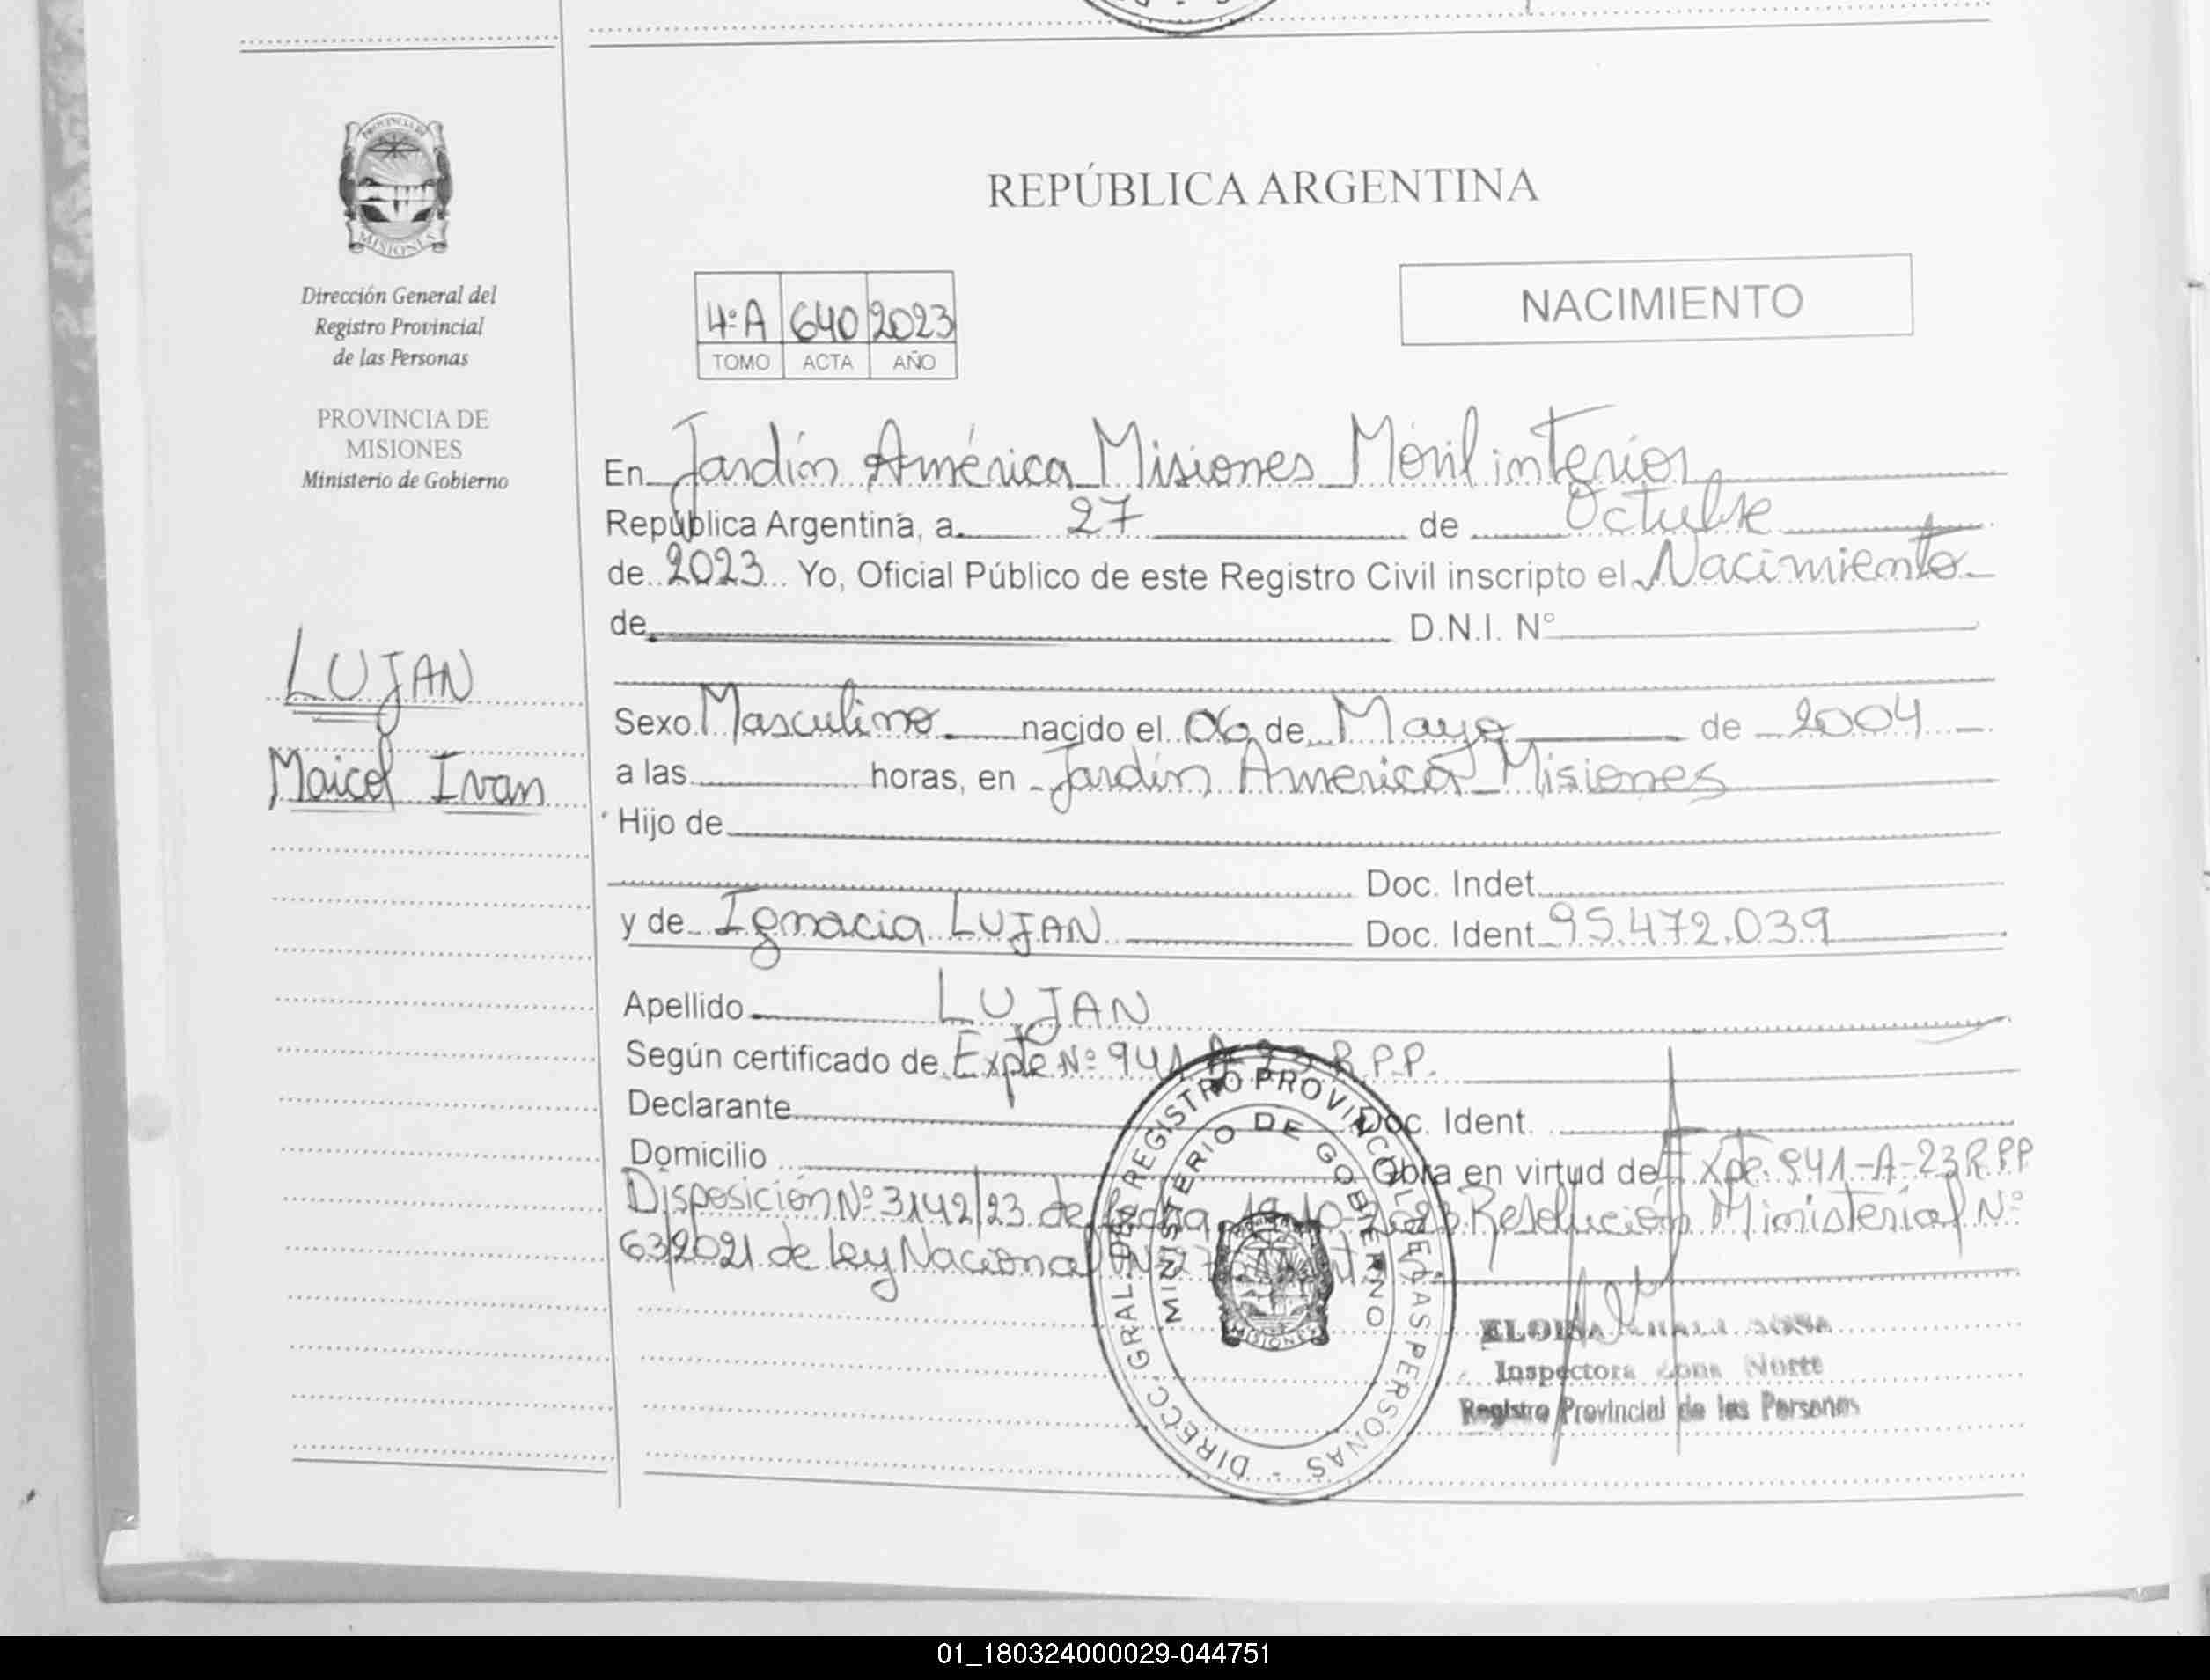 PROVINCIA DE
MISIONES
Dirección General del
Registro Provincial
de las Personas
PROVINCIA DE
MISIONES
Ministerio de Gobierno
LUJAN
Maicol Ivan
REPÚBLICA ARGENTINA
NACIMIENTO
4ºA 640 2023
TOMO ACTA AÑO
En Jardín América Misiones Móvil interior
República Argentina, a 27 de Octubre
de 2023 Yo, Oficial Público de este Registro Civil inscripto el Nacimiento
de D.N.I. Nº
Sexo Masculino nacido el 06 de Mayo de 2004
a las horas, en Jardín América Misiones
Hijo de
Doc. Indet.
y de Ignacia LUJAN Doc. Ident 95.472.039
Apellido LUJAN
Según certificado de Expte Nº 941 A 23 R.P.P.
Declarante Doc. Ident.
Domicilio Obra en virtud de Expte. 941-A-23 R.P.P
Disposición Nº 3142/23 de fecha Resolución Ministerial Nº
63/2021 de Ley Nacional
DIRECC. GRAL. DEL REGISTRO PROVINCIAL DE LAS PERSONAS
MINISTERIO DE GOBIERNO
MISIONES
ELOISA
Inspectora Zona Norte
Registro Provincial de las Personas
01_180324000029-044751